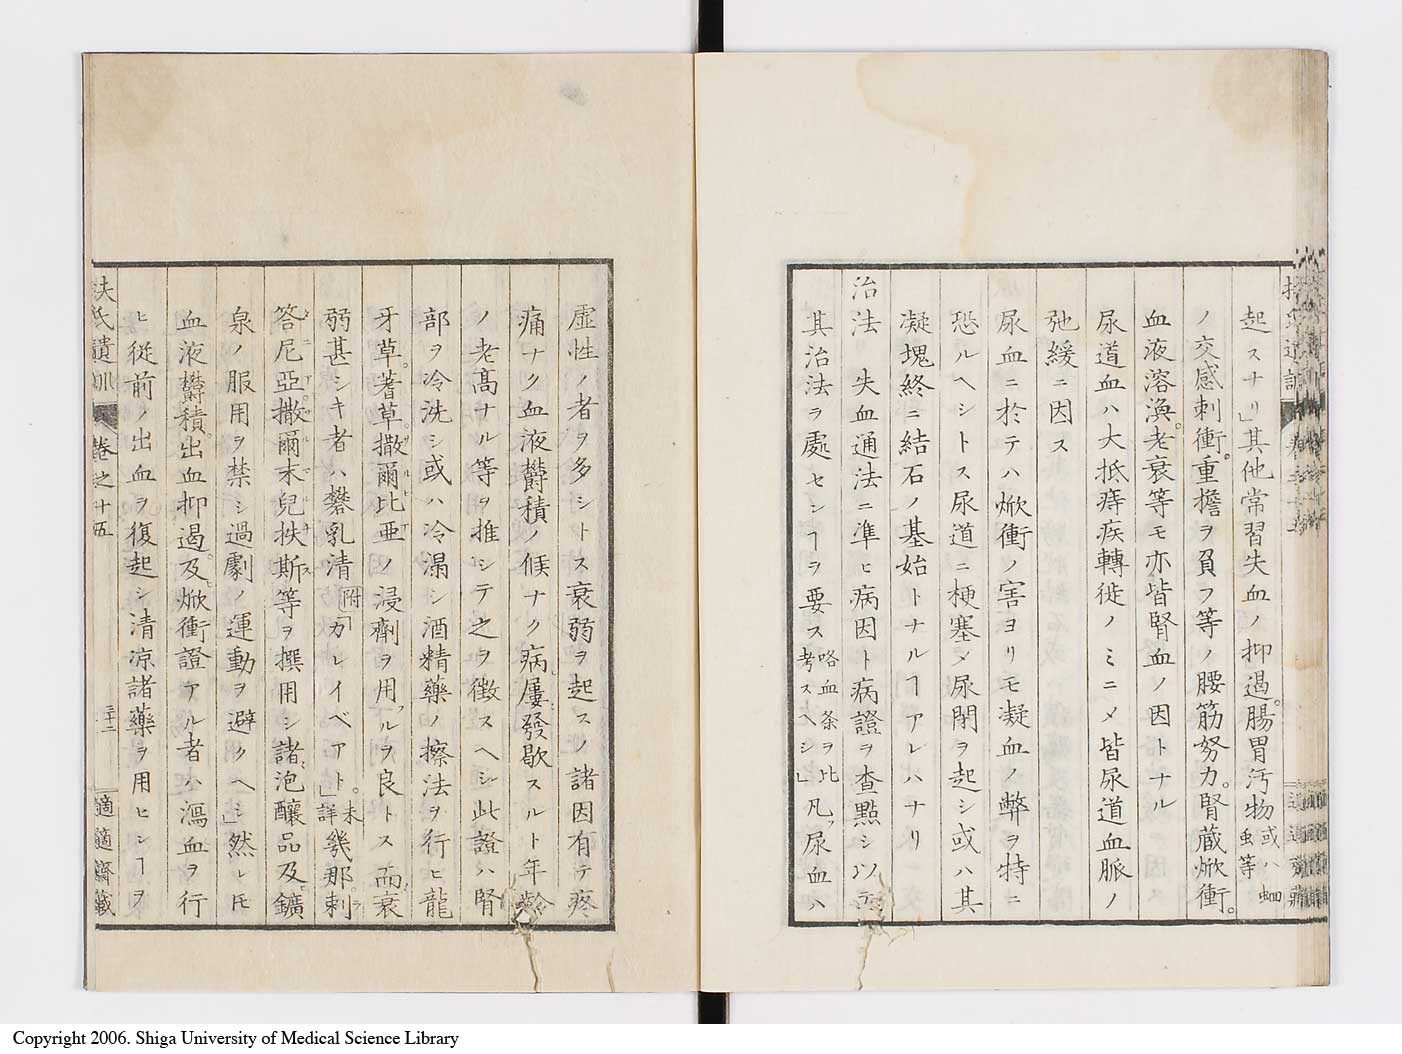 起スナリ」其他常習失血ノ抑遏。腸胃汚物或ハ蛔虫等
ノ交感刺衝。重擔ヲ負フ等ノ腰筋努力。腎蔵焮衝。
血液溶渙。老衰等モ亦皆腎血ノ因トナル
尿道血ハ大抵痔疾轉徙ノミニメ皆尿道血脈ノ
弛緩ニ因ス
尿血ニ於テハ焮衝ノ害ヨリモ凝血ノ弊ヲ特ニ
恐ルヘシトス尿道ニ梗塞メ尿閉ヲ起シ或ハ其
凝塊終ニ結石ノ基始トナルヿアレハナリ
治法 失血通法ニ準ヒ病因ト病證ヲ査點シ以テ
其治法ヲ處センヿヲ要ス咯血条ヲ比考スヘシ」凡ソ尿血ハ
虚性ノ者ヲ多シトス衰弱ヲ起スノ諸因有テ疼
痛ナク血液欝積ノ候ナク病屢發歇スルト年齡
ノ老髙ナル等ヲ推シテ之ヲ徴スヘシ此證ハ腎
部ヲ冷洗シ或ハ冷溻シ酒精藥ノ擦法ヲ行ヒ龍
牙草。蓍草。撒爾比亜ノ浸劑ヲ用フルヲ良トス而衰
弱甚シキ者ハ礬乳清附カレイベアト。未詳」幾那。刺
答尼亞。撒爾末兒抶斯等ヲ撰用シ諸泡釀品及鑛
泉ノ服用ヲ禁シ過劇ノ運動ヲ避クヘシ」然レ𪜈
血液欝積出血抑遏。及焮衝證アル者ハ瀉血ヲ行
ヒ従前ノ出血ヲ復起シ清凉諸藥ヲ用ヒシヿヲ
扶氏遺訓 卷之十五 三十二 適適齋藏